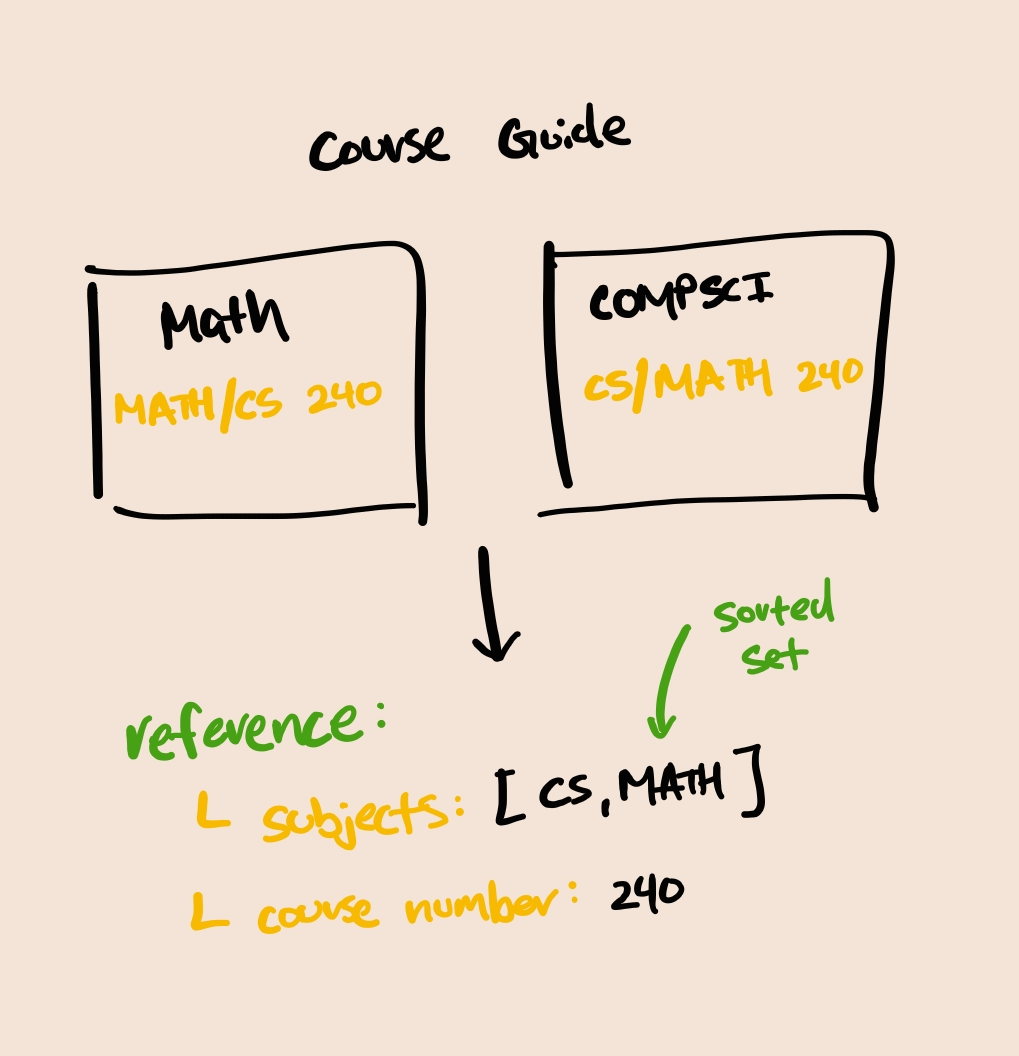 Course Guide
Math
MATH/CS 240
COMPSCI
CS/MATH 240
sorted
set
reference:
subjects: [CS, MATH]
course number: 240